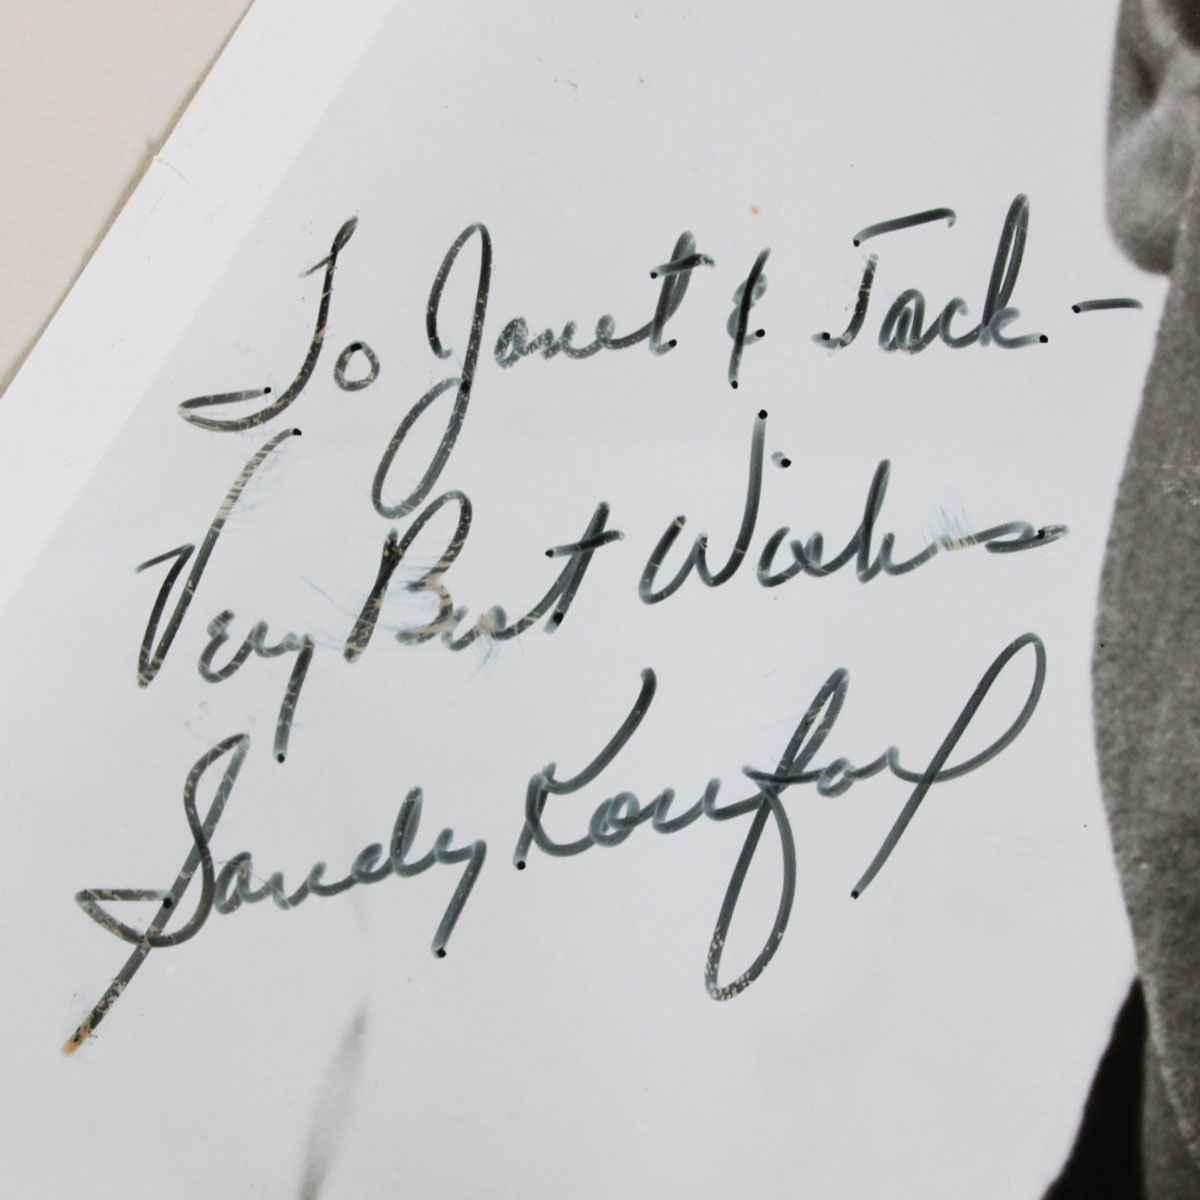 To Janet & Jack -
Very Best Wishes
Sandy Koufax